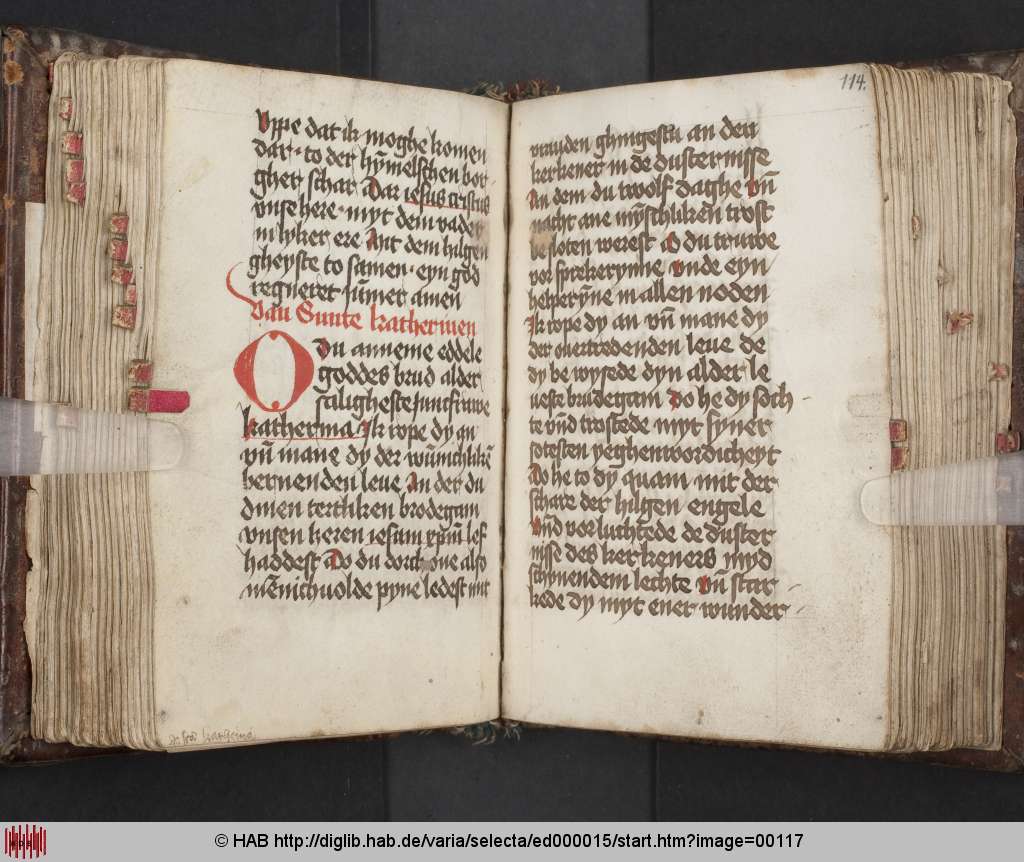 Vppe dat ik moghe komen
dar · to der hymelschen bor
gher schar Dar iesus cristus
vnse here · myt dem vader
in lyker ere Ant dem hilgen
gheyste to samen · eyn god
regneret jummer amen
Van Sunte Katherinen
O Du anneme eddele
goddes brud alder
saligheste juncfrawe
katherina Ik rope dy an
vn̄ mane dy der
bernenden leue An der du
dinen brodegam
vnsen heren iesum xp̄m lef
haddest Do du dorch one also
mēnichuolde pyne ledest mit
114.
an den
kerkener in de dusternisse
An dem du twolf daghe vn̄
nacht ane mynschliken trost
besloten werest O du truwe
vorsprekerynne vnde eyn
helperyne in allen noden
Ik rope dy an vn̄ mane dy
der ouertredenden leue de
dy bewysede dyn alder le
ueste brudegam Do he dy soch
te vnd trostede myt syner
sotesten yeghenwordicheyt
Do he to dy quam mit der
schare der hilgen engele
Vnd vorluchtede de duster
nisse des kerkeners myd
schynendem lechte Vn̄ star
kede dy myt ener wunder
© HAB http://diglib.hab.de/varia/selecta/ed000015/start.htm?image=00117